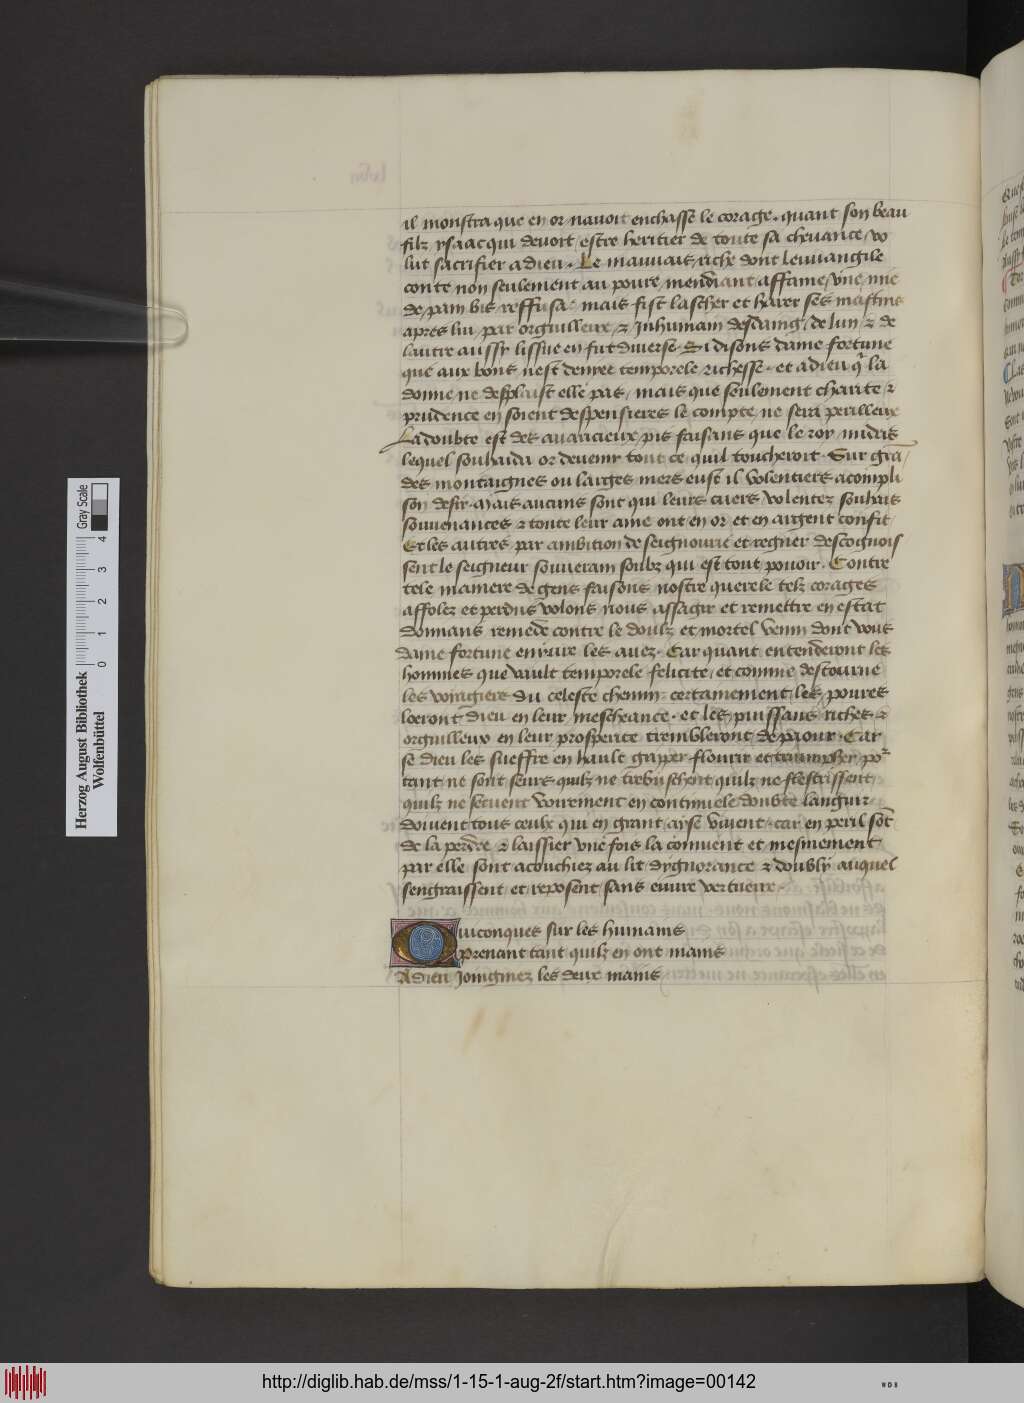 il monstra que en or nauoit enchasse le corage. quant son beau
filz ysaac qui deuoit estre heritier de toute sa cheuance vo
lut sacrifier a dieu. Le mauuais riche dont leuuangile
conte non seulement au poure mendiant affame vne mie
de pain bis reffusa. mais fist lascher et harer ses mastins
apres lui par orguilleux & Inhumain desdaing de lun & de
lautre aussy lissue en fut diuerse. Si disons dame fortune
que aux bons nest deniee temporele richesse. et a dieu q̄ la
donne ne desplaist elle pas / mais que seulement charite &
prudence en soient despensieres le compte ne sera perilleux
La doubte est des auaricieux pis faisans que le roy midas
lequel souhaida or deuenir tout ce quil toucheroit. Sur grā
des montaignes ou larges mers eust il volentiers acompli
son desir. Mais aucuns sont qui leurs cuers volentez souhais
souuenances & toute leur ame ont en or et en argent confit
Et les autres par ambition de seignourie et regner descognois
sent le seigneur souuerain soubz qui est tout pouoir. Contre
tele maniere de gens faisons nostre querele telz corages
affolez et perdus volons nous assagir et remettre en estat
donnans remede contre le doulz et mortel venin dont vous
dame fortune eniurez les auez. Car quant entenderont les
hommes que vault temporele felicite / et comme destourne
les voyagiers du celeste chemin certainement les poures
loeront dieu en leur mescheance. et les puissans riches &
orguilleux en leur prosperite trembleront de paour. Car
se dieu les sueffre en hault graper flourir et triumpher po^r
tant ne sont seurs quilz ne trebuschent quilz ne flestrissent
quilz ne sechent voirement en continuele doubte languir
doiuent tous ceulx qui en grant ayse viuent. car en peril sōt
de la perdre & laissier vne fois la conuient et mesmement
par elle sont acouchiez au lit dygnorance & doubly auquel
sengraissent et reposent sans euure vertueux.
Quiconques sur les humains
Prenant tant quilz en ont mains
A dieu Joingniez les deux mains
Herzog August Bibliothek
Wolfenbüttel
0 1 2 3 4
Gray Scale
http://diglib.hab.de/mss/1-15-1-aug-2f/start.htm?image=00142